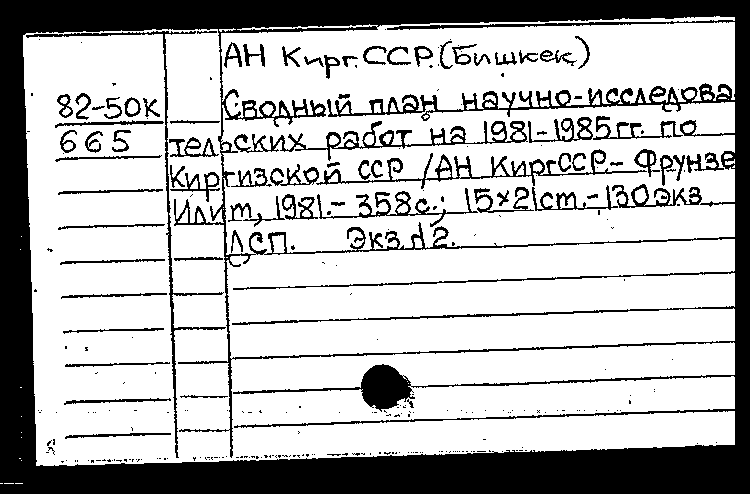 АН Кирг.ССР.(Бишкек)
82-50к Сводный план научно-исследова
665 тельских работ на 1981-1985гг. по
Киргизской ССР /АН КиргССР.- Фрунзе
Илим, 1981.- 358с.; 15×21см.-130экз.
ДСП. Экз.№2.